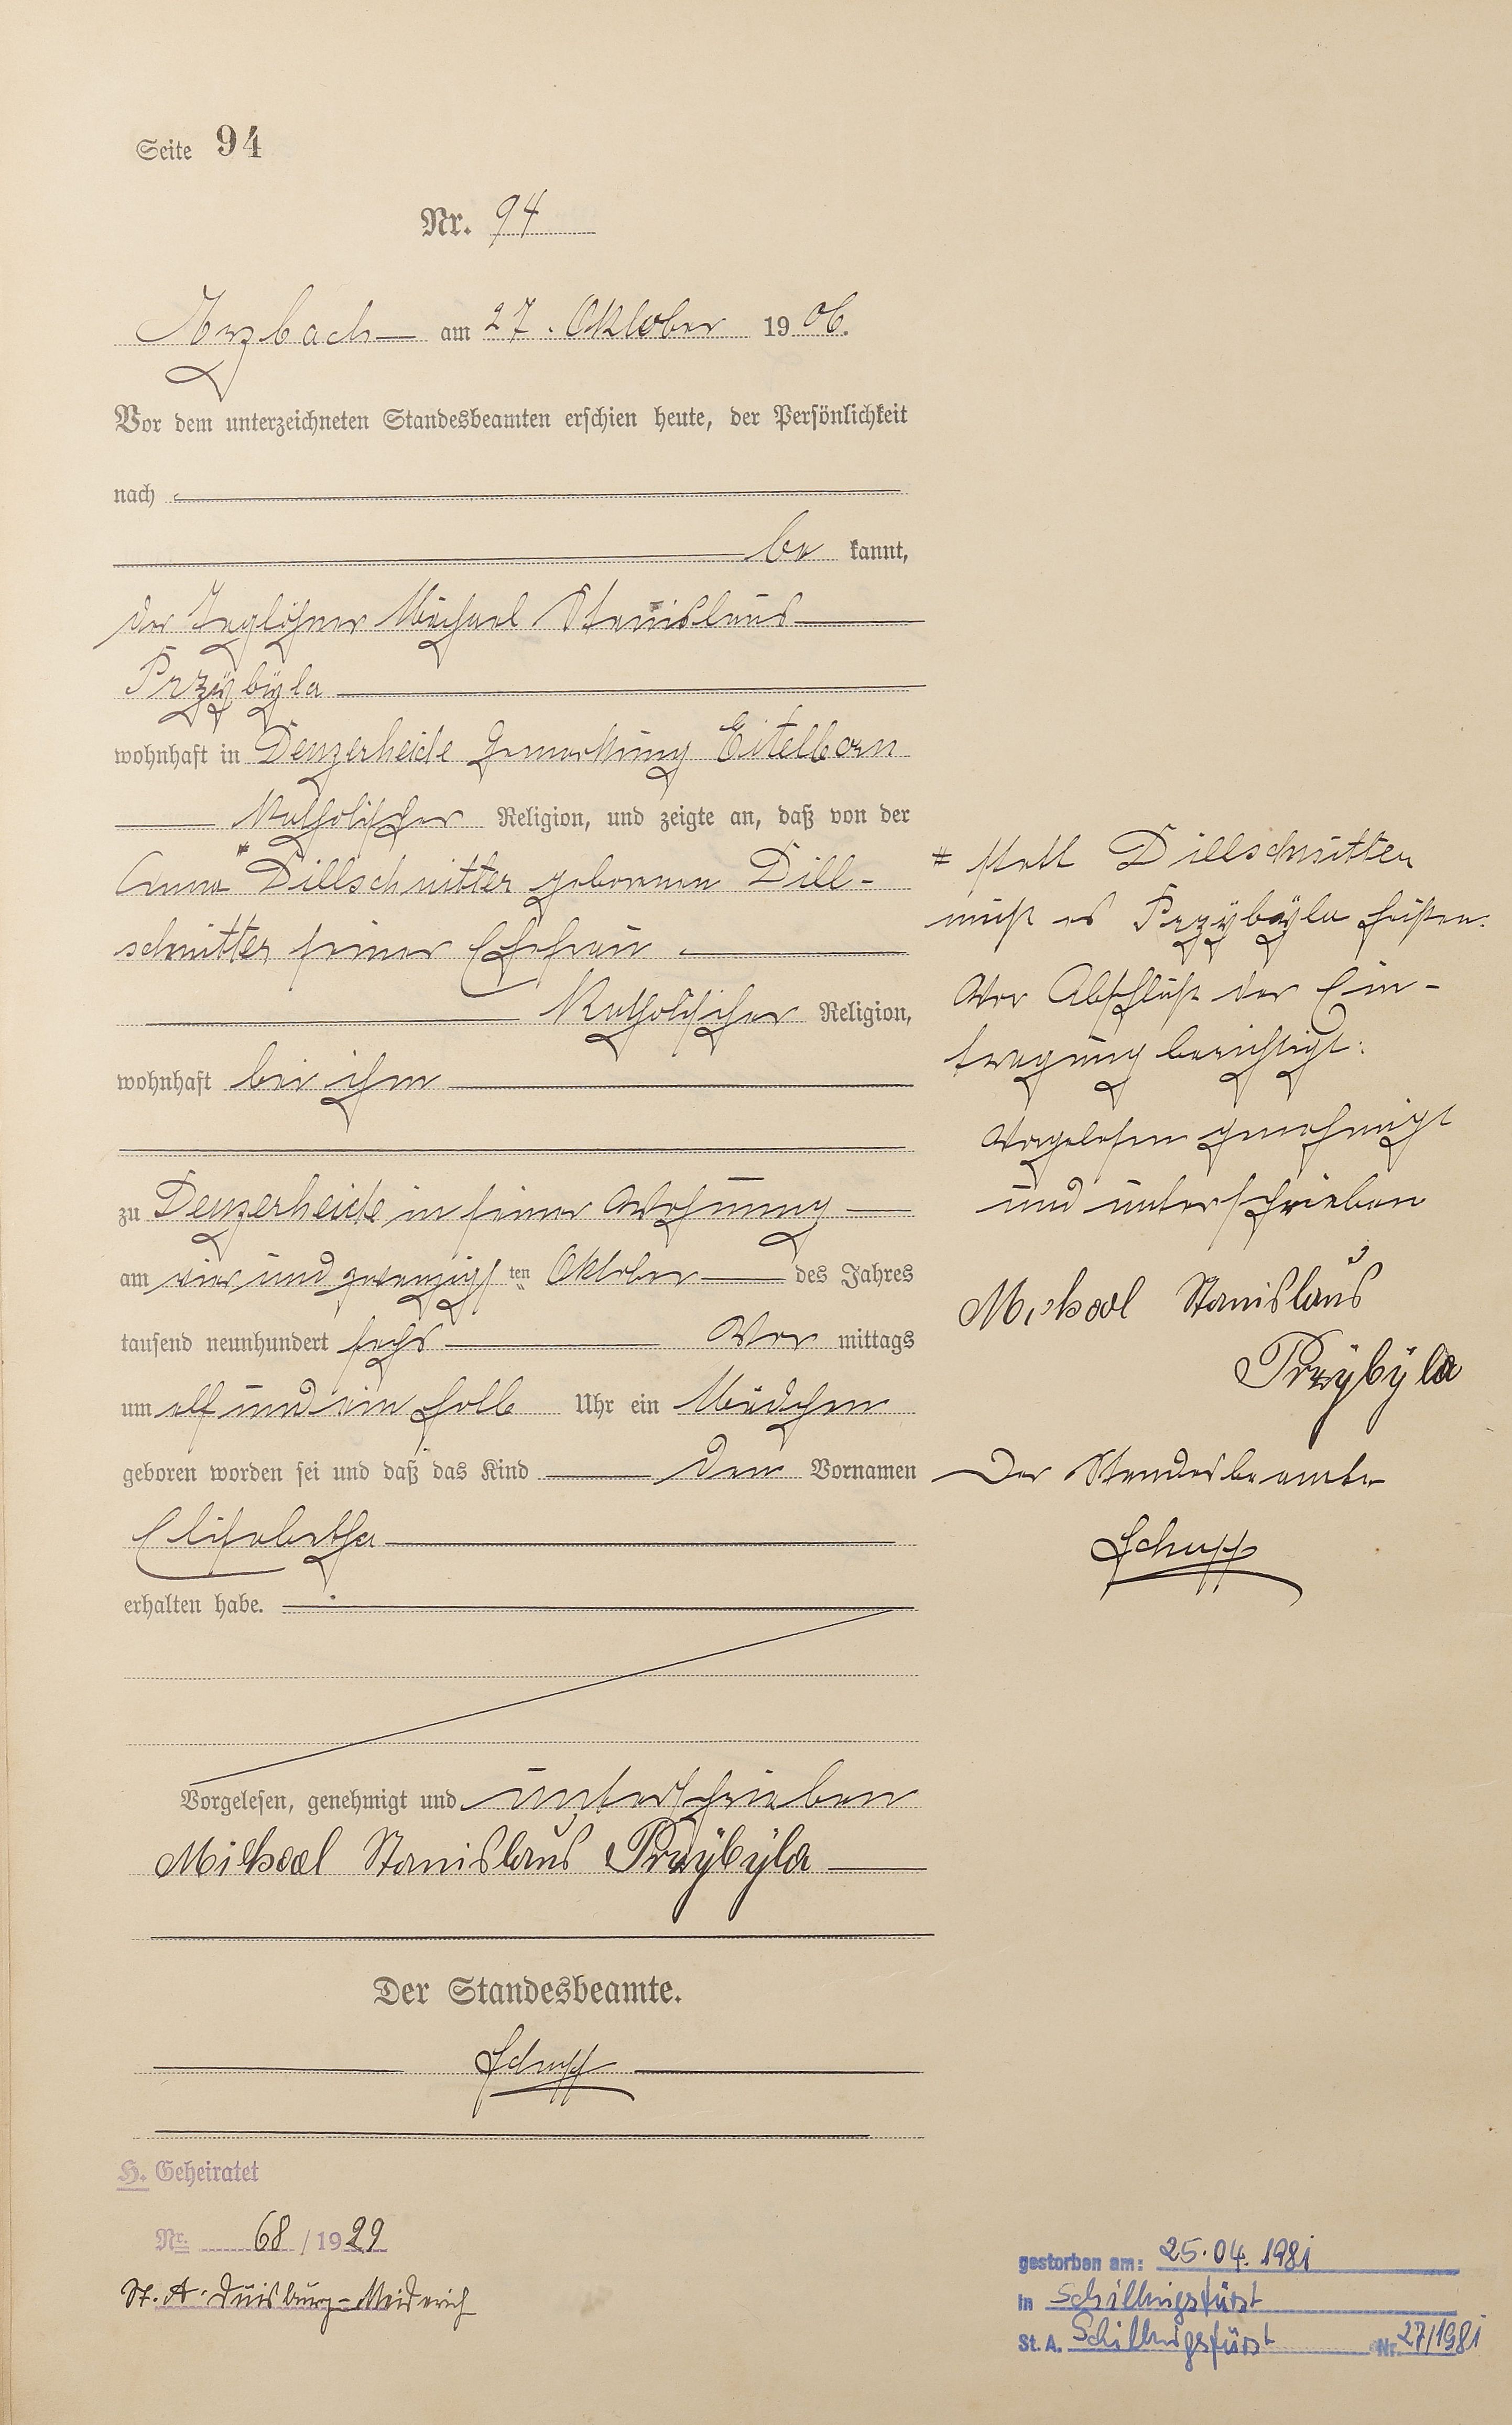 Seite 94
Nr. 94
Arzbach am 27. Oktober 1906.
Vor dem unterzeichneten Standesbeamten erschien heute, der Persönlichkeit
nach
be kannt,
der Taglöhner Michael Stanislaus
Przÿbÿla
wohnhaft in Denzerheide Gemarkung Eitelborn
Katholischer Religion, und zeigte an, daß von der
Anna # Dillschnitter geborenen Dill-
schnitter seiner Ehefrau
Katholischer Religion,
wohnhaft bei ihm
zu Denzerheide in seiner Wohnung
am vier und zwanzigsten Oktober des Jahres
tausend neunhundert sechs Vor mittags
um elf und ein halb Uhr ein Mädchen
geboren worden sei und daß das Kind den Vornamen
Elisabetha
erhalten habe.
Vorgelesen, genehmigt und unterschrieben
Michael Stanislaus Przÿbÿla
Der Standesbeamte.
Schupp
H. Geheiratet
Nr. 68/1929
St. A. Duisburg-Meiderich
# statt Dillschnitter
muß es Przÿbÿla heißen.
Vor Abschluß der Ein-
tragung berichtigt.
Vorgelesen genehmigt
und unterschrieben
Michael Stanislaus
Przÿbÿla
Der Standesbeamte
Schupp
gestorben am: 25.04.1981
in Schillingsfürst
St. A. Schillingsfürst Nr. 27/1981